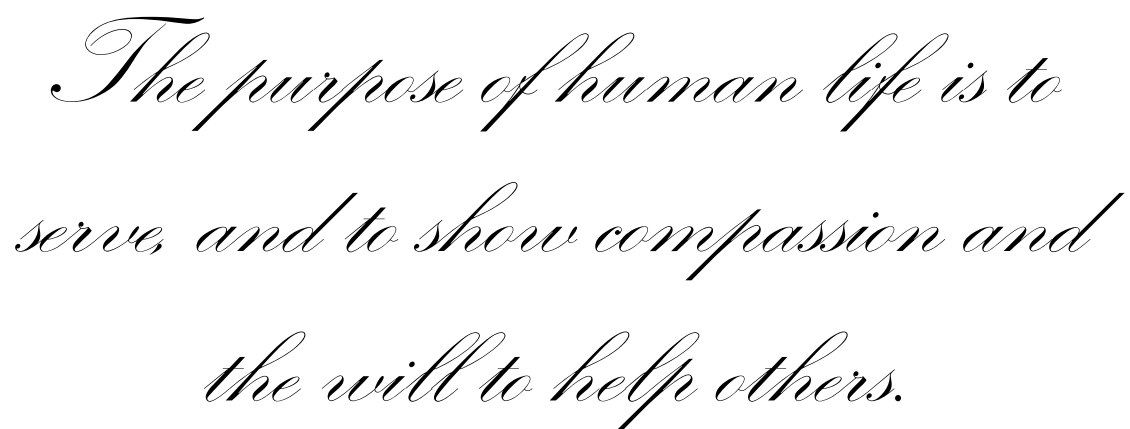 The purpose of human life is to
serve, and to show compassion and
the will to help others.